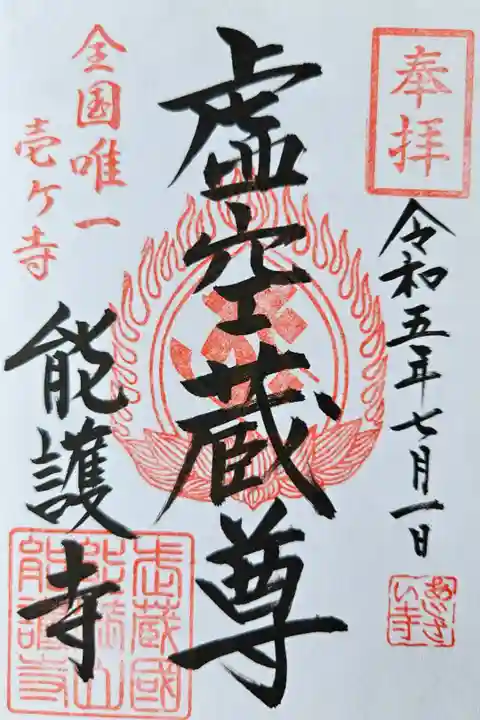 奉拝
令和五年七月一日
あじさ
い寺
虚空蔵尊
全国唯一
壱ケ寺
能護寺
武蔵國
能護山
能護寺